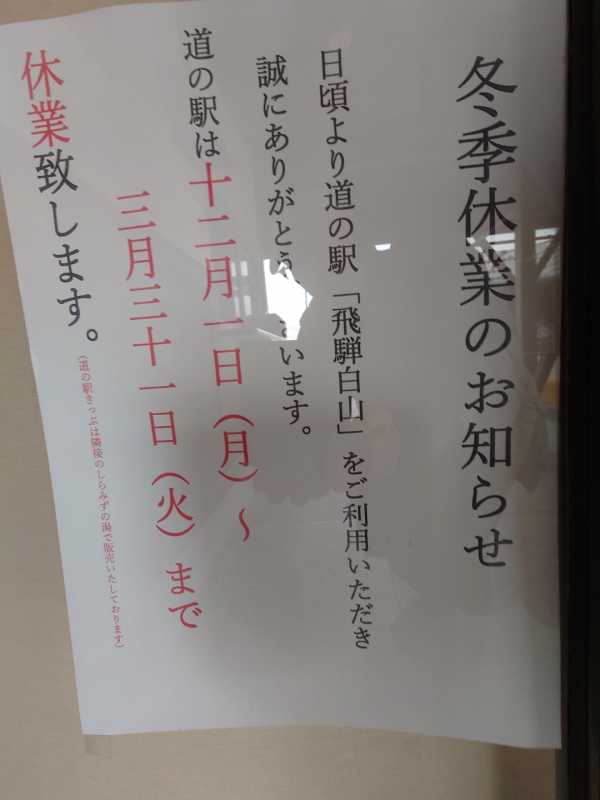 冬季休業のお知らせ
日頃より道の駅「飛騨白山」をご利用いただき
誠にありがとうざいます。
道の駅は十二月一日（月）～
三月三十一日（火）まで
休業致します。
（道の駅きっぷは隣接のしらみずの湯で販売いたしております）